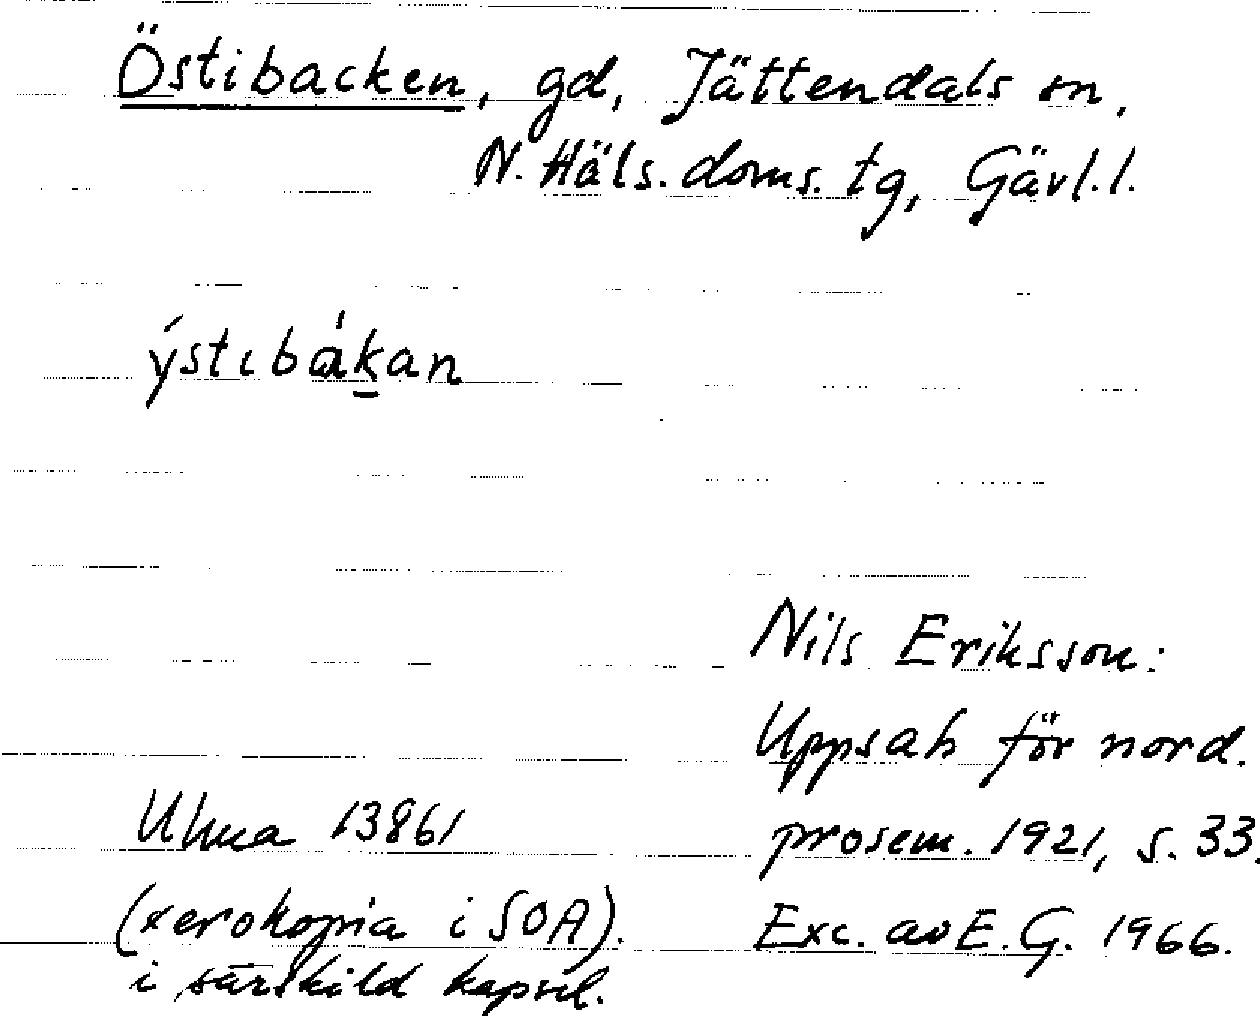 Östibacken, gd, Jättendals sn,
N. Häls. doms. tg, Gävl. l.
ýstıbákan
Nils Eriksson:
Uppsats för nord.
prosem. 1921, s. 33.
Exc. av E. G. 1966.
Ulma 13861
(xerokopia i SOA).
i särskild kapsel.